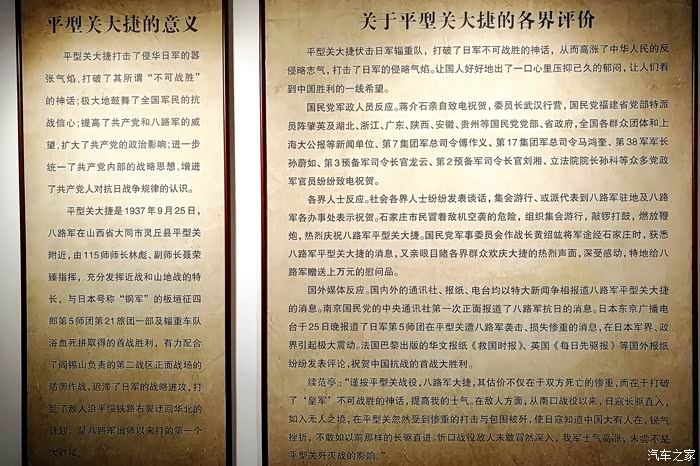 平型关大捷的意义
平型关大捷打击了侵华日军的嚣
张气焰,打破了其所谓“不可战胜”
的神话;极大地鼓舞了全国军民的抗
战信心;提高了共产党和八路军的威
望,扩大了共产党的政治影响;进一步
统一了共产党内部的战略思想,增进
了共产党人对抗日战争规律的认识。
平型关大捷是1937年9月25日,
八路军在山西省大同市灵丘县平型关
附近,由115师师长林彪、副师长聂荣
臻指挥,充分发挥近战和山地战的特
长,与日本号称“钢军”的板垣征四
郎第5师团第21旅团一部及辎重车队
浴血死拼取得的首战胜利,有力配合
了阎锡山负责的第二战区正面战场的
防御作战,迟滞了日军的战略进攻,打
乱了敌人沿平绥铁路右翼迂回华北的
计划,是八路军出师以来打的第一个
大胜仗。
关于平型关大捷的各界评价
平型关大捷伏击日军辎重队,打破了日军不可战胜的神话,从而高涨了中华人民的反
侵略志气,打击了日军的侵略气焰。让国人好好地出了一口心里压抑已久的郁闷,让人们看
到中国胜利的一线希望。
国民党军政人员反应。蒋介石亲自致电祝贺,委员长武汉行营,国民党福建省党部特派
员陈肇英及湖北、浙江、广东、陕西、安徽、贵州等国民党党部、省政府,全国各群众团体和上
海大公报等新闻单位、第7集团军总司令傅作义、第17集团军总司令马鸿逵、第38军军长
孙蔚如、第3预备军司令长官龙云、第2预备军司令长官刘湘、立法院院长孙科等众多党政
军官员纷纷致电祝贺。
各界人士反应。社会各界人士纷纷发表谈话,集会游行、或派代表到八路军驻地及八路
军各办事处表示祝贺。石家庄市民冒着敌机空袭的危险,组织集会游行,敲锣打鼓,燃放鞭
炮,热烈庆祝八路军平型关大捷。国民党军事委员会作战长黄绍竑将军途经石家庄时,获悉
八路军平型关大捷的消息,又亲眼目睹各界群众欢庆大捷的热烈声面,深受感动,特地给八
路军赠送上万元的慰问品。
国外媒体反应。国内外的通讯社、报纸、电台均以特大新闻争相报道八路军平型关大捷
的消息。南京国民党的中央通讯社第一次正面报道了八路军抗日的消息。日本东京广播电
台于25日晚报道了日军第5师团在平型关遭八路军袭击、损失惨重的消息,在日本军界、政
界引起极大震动。法国巴黎出版的华文报纸《救国时报》、英国《每日先驱报》等国外报纸
纷纷发表评论,祝贺中国抗战的首战大胜利。
续范亭:“谨按平型关战役,八路军大捷,其估价不仅在于双方死亡的惨重,而在于打破
了‘皇军’不可战胜的神话,提高我的士气。在敌人方面,从南口战役以来,日寇长驱直入,
如入无人之境,在平型关忽然受到惨重的打击与包围被歼,使日寇知道中国大有人在,锐气
挫折,不敢如以前那样的长驱直进。忻口战役敌人未敢冒然深入,我军士气高涨,未尝不是
平型关死灭战的影响。”
汽车之家